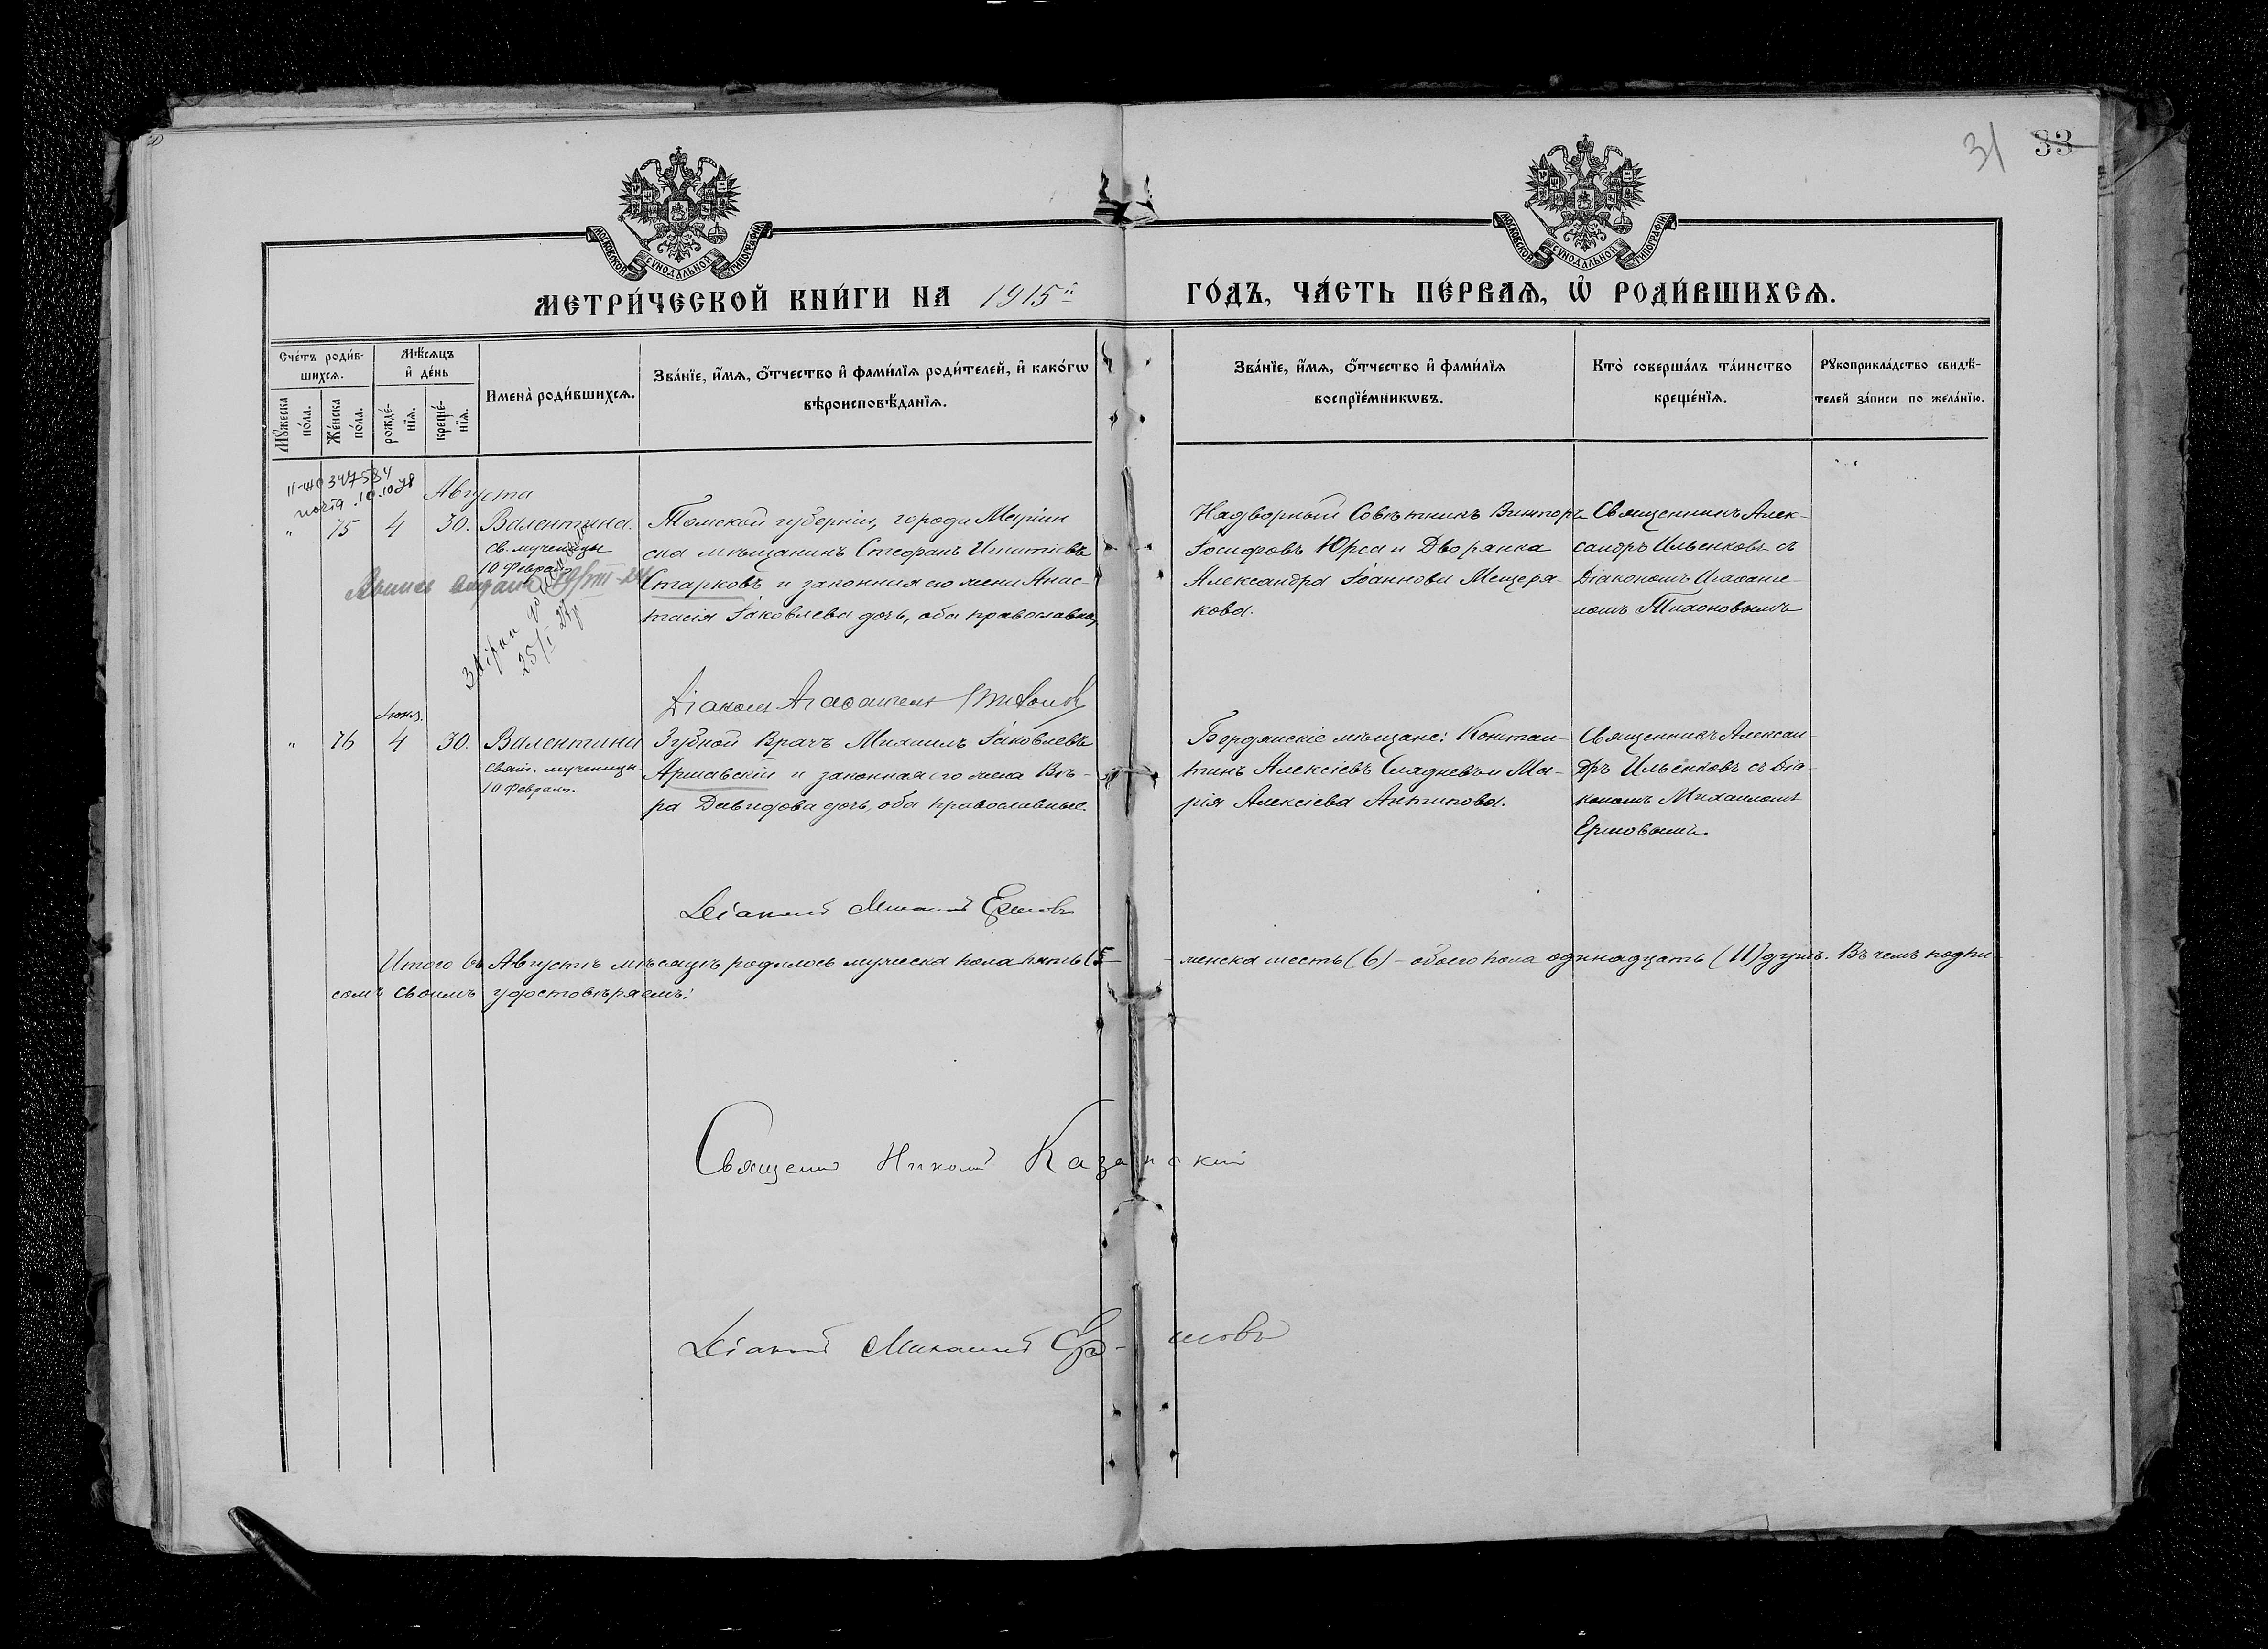 31 33
МОСКОВСКОЙ СУНОДАЛЬНОЙ ТИПОГРАФІИ
МОСКОВСКОЙ СУНОДАЛЬНОЙ ТИПОГРАФІИ
МЕТРИ́ЧЕСКОЙ КНИ́ГИ НА 1915й ГО́ДЪ, ЧА́СТЬ ПЕ́РВАѦ, Ѡ҆ РОДИ́ВШИХСѦ.
Сче́тъ роди́в-
шихсѧ.
Мѣ́сѧцъ
и҆ де́нь
Мꙋ́жеска по́ла.
Же́нска по́ла.
рожде́-
нїѧ.
креще́-
нїѧ.
Имена̀ роди́вшихсѧ.
Зва́нїе, и҆́мѧ, ѻ҆́тчество и҆ фами́лїѧ роди́телей, и҆ како́гѡ
вѣроисповѣ́данїѧ.
Зва́нїе, и҆́мѧ, ѻ҆́тчество и҆ фами́лїѧ
воспрїе́мникѡвъ.
Кто̀ соверша́лъ та́инство
креще́нїѧ.
Рꙋкоприкла́дство свидѣ́-
телей за́писи по жела́нїю.
347584
10.78
Августа
" 75 4 30. Валентина.
св. мученицы
10 Февраля
25/I 27
Томской губерніи, города Маріин
ска мѣщанинъ Стефанъ Игнатіевъ
Старковъ и законная его жена Анас-
тасія Іаковлева дочь, оба православн.
Надворный Совѣтникъ Викторъ
Іосифовъ Юрса и Дворянка
Александра Іоаннова Мещеря-
кова.
Священникъ Алек-
сандръ Ильенковъ съ
Діакономъ Агаѳанге-
ломъ Тихоновымъ
Діаконъ Агаѳангелъ Тихоновъ
Іюня.
" 76 4 30. Валентина
Свят. мученицы
10 Февраля.
Зубной Врачъ Михаилъ Іаковлевъ
Аршавскій и законная его жена Вѣ-
ра Давидова дочь, оба православные.
Бердянскіе мѣщане: Констан-
тинъ Алексіевъ Сладневъ и Ма-
рія Алексіева Антипова.
Священникъ Алексан-
дръ Ильенковъ съ Діа-
кономъ Михаиломъ
Ершовымъ.
Діаконъ Михаилъ Ершовъ
Итого въ Августѣ мѣсяцѣ родилось мужеска пола пять (5 – женска шесть (6) – обоего пола одиннадцать (11) душъ. Въ чемъ подпи-
сомъ своимъ удостовѣряемъ:
Священникъ Николай Казанскій
Діаконъ Михаилъ Ер-шовъ